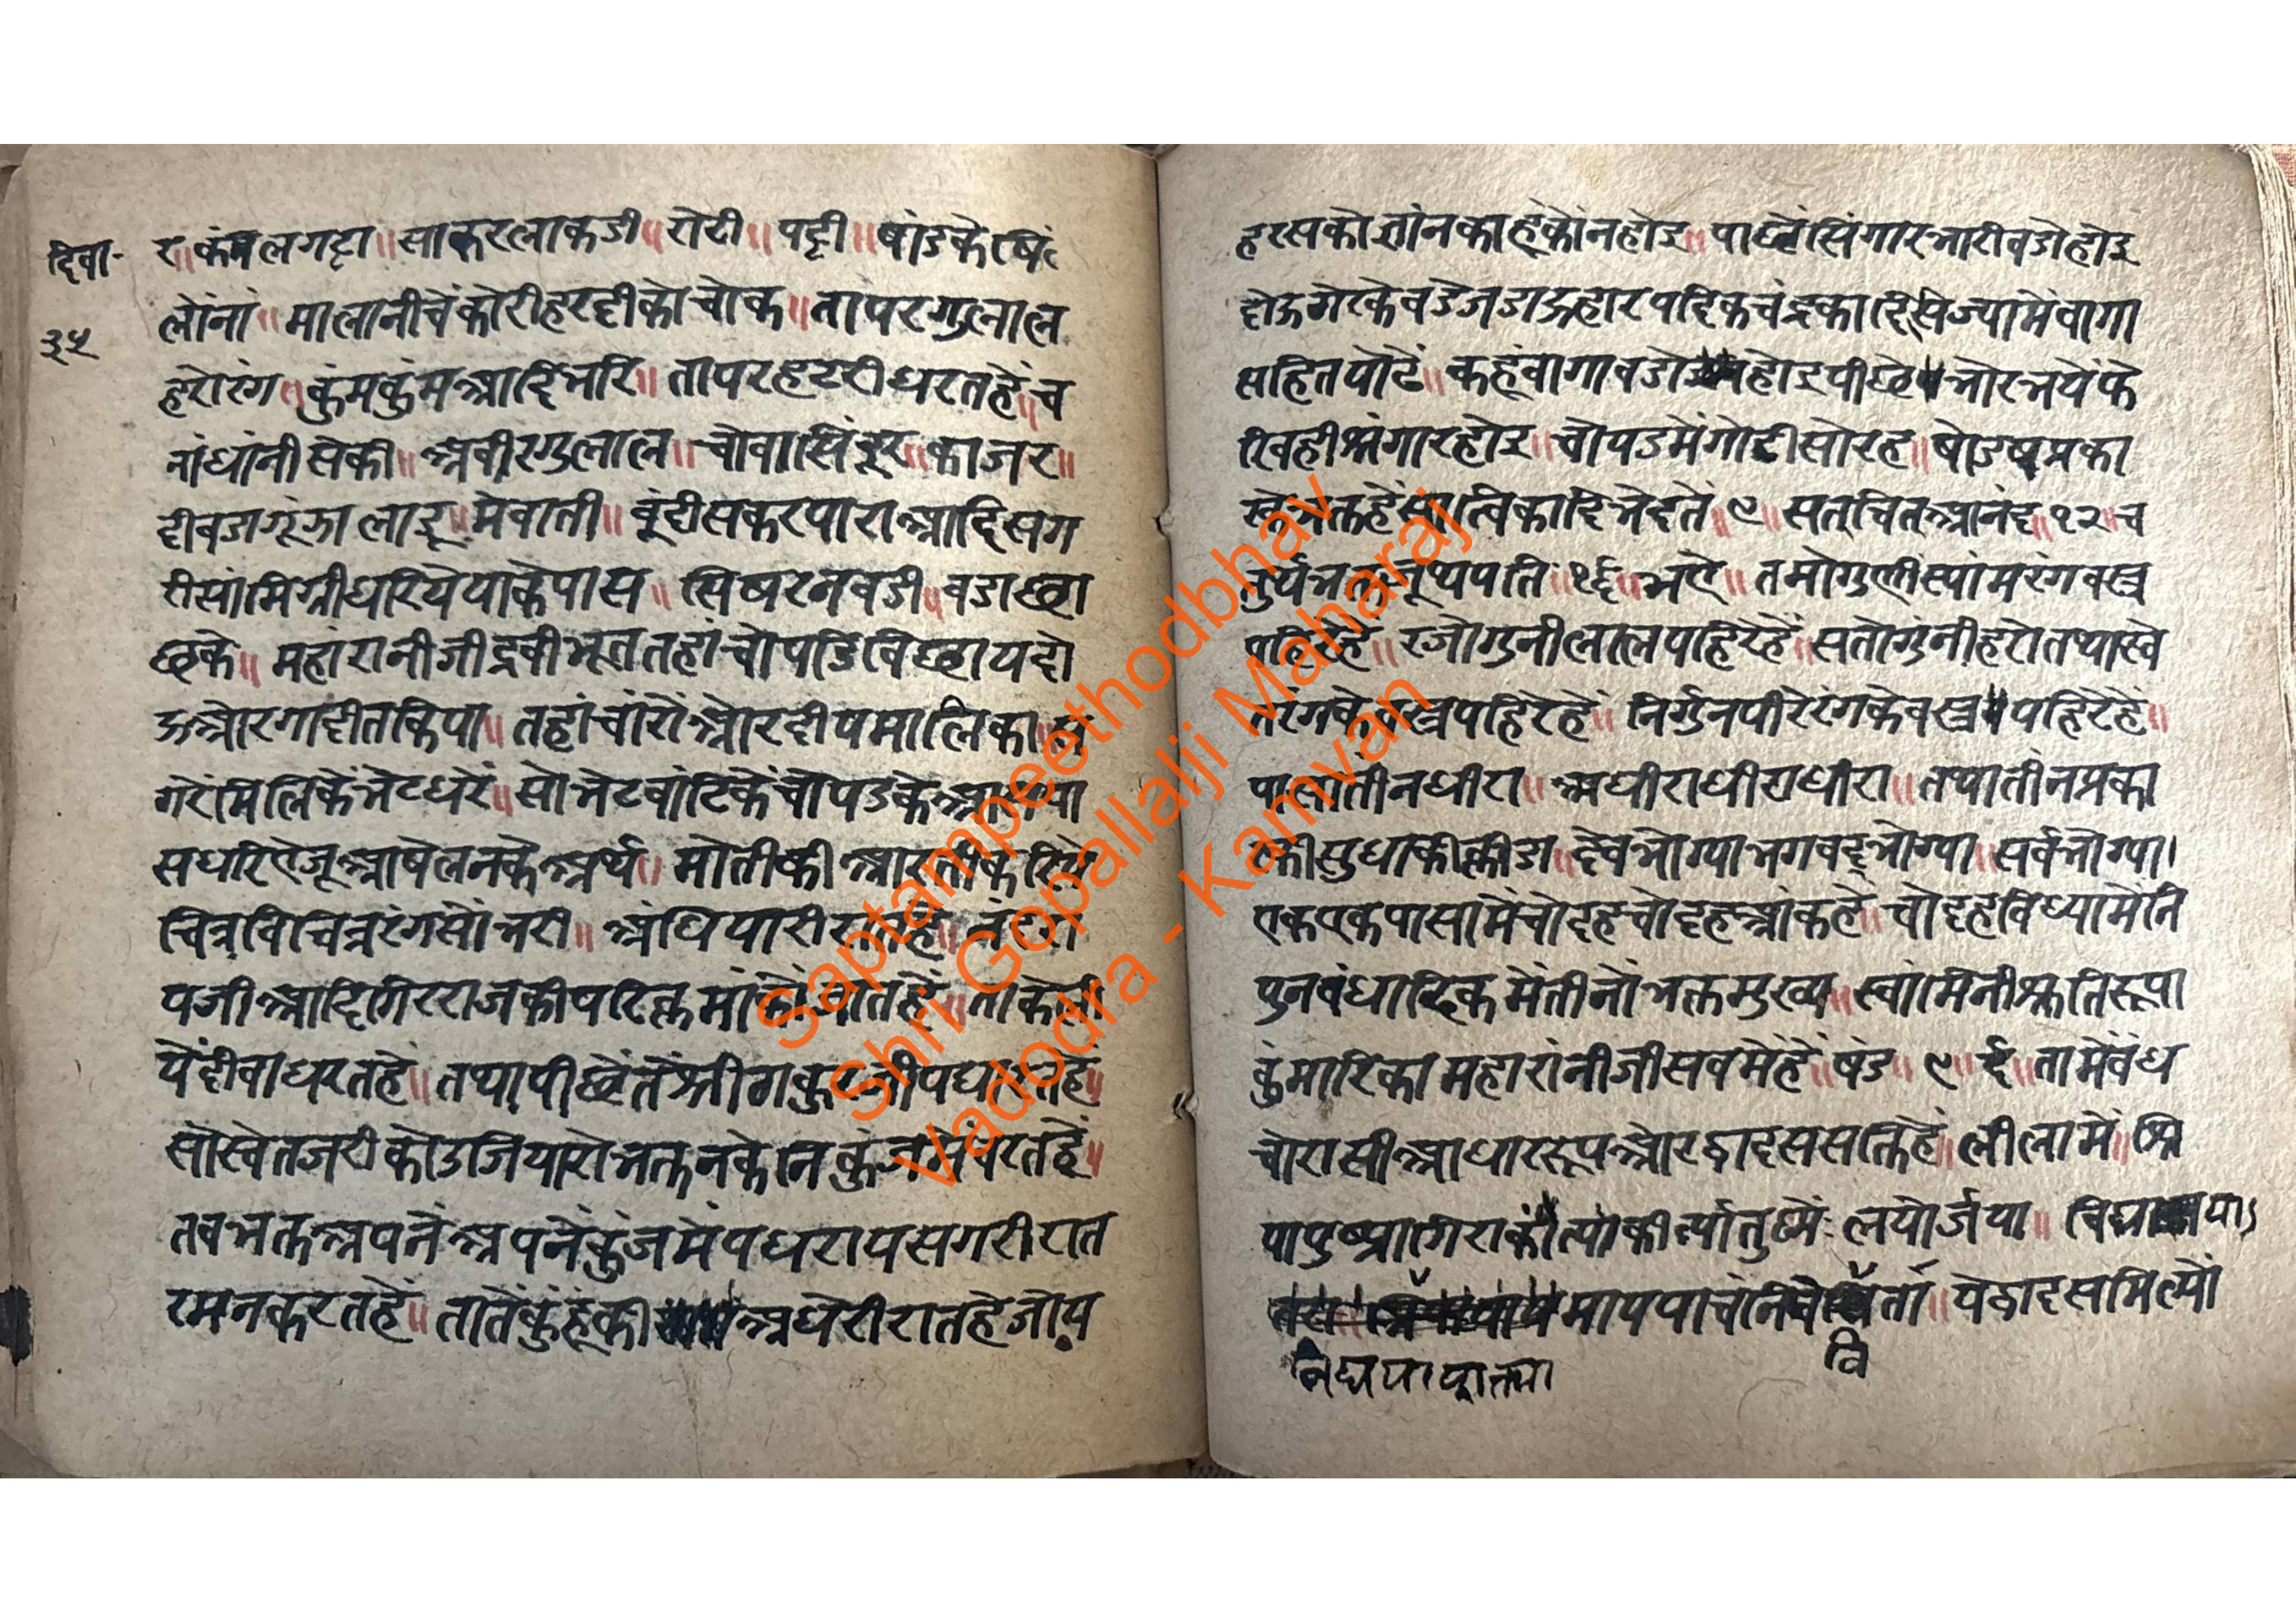 दिवा-
३५
र॥ कंमलगट्टा॥ साकरलाकडी॥ रोटी॥ पट्टी॥ षांडकेषि
लोंनां॥ मालानीचेंकोरीहरदीकोचोक॥ तापरगुलाल
हरोरंग॥ कुंमकुंमआदिभरि॥ तापरहटरीधरतहें॥ च
नांधांनीसेकी॥ अबीरगुलाल॥ चोवासिंदूर॥ काजर॥
दीवडागूंझालाडू॥ मेवाती॥ बूंदीसकरपाराआदिसग
रीसांमिग्रीधरियेपाकेपास॥ सिषरनवडी॥ वडाछा
छके॥ महांरानीजीद्रवीभूततहांचोपडिबिछायदो
ऊओरगादीतकिया॥ तहांचांरोंओरदीपमालिका॥
गरेंमिलिकेंभेटधरें॥ सोभेटबांटिकेंचोपडके
सधरिऐजूआषेलनकेअर्थ॥ मोतीकीआरतीकरि
चित्रविचित्ररंगसोंभरी॥ अंधियारी
पजीआदिगिरराजकीपरिक्रमांकों
येंदीवाधरतहें॥ तथापीछेंतेंश्रीठाकुरजीपधा
सोस्वेतजरीकोउजियारोभक्तनकेनिकुंजमें
तबभक्तअपनेंअपनेंकुंजमेंपधरायसगरीरात
रमनकरतहें॥ तातेंकुंहूंकीअधेरीरातहेजोय
हरसकोग्यांनकाहूकोंनहोइ॥ पाछेंसिंगारभारीबडोहोइ
दोऊगेरकेबडेजडाऊहारपदिकचंद्रकादिसिज्यामेंवागा
सहितपोढें॥ कहूंवागावडोहोइपीछेभोरभयेंफे
रिवहीश्रंगारहोइ॥ चोपडमेंगोटीसोरह॥ षोडषप्रका
भक्तहेंसात्विकादिभेदतें॥ ९॥ सतचितआनंद॥ १२॥ च
तुर्यभक्तजूथपति॥ १६॥ भऐ॥ तमोगुणीस्यांमरंगवस्त्र
पहिरेहें॥ रजोगुनीलालपहिरेहें॥ सतोगुंनीहरोतथास्वे
तरंगकेवस्त्रपहिरेहें॥ निर्गुनपीरेरंगकेवस्त्रपहिरेहें॥
पासातीनधीरा॥ अधीराधीराधीरा॥ तथातीनप्रका
कीसुधाकीक्रीडा॥ देवभोग्याभगवद्भोग्या॥ सर्वभोग्या।
एकएकपासामेंचोदहचोदहआंकहें॥ चोदहविध्यामेंनि
पुनबंधादिकमेंतीनोंभक्तमुख्य॥ स्वांमिनीश्रुतिरूपा
कुंमारिकामहारांनीजीसबमेंहें॥ षंड॥ ९६॥ तामेंबंध
चोरासीआधाररूपओरद्वादससक्तिहें॥ लीलामें॥ श्रि
यापुष्ट्यागिराकांत्याकीर्त्यातुष्टये-लयोर्जया॥
माययाचनिर्ता॥ येद्वादसमिल्यों